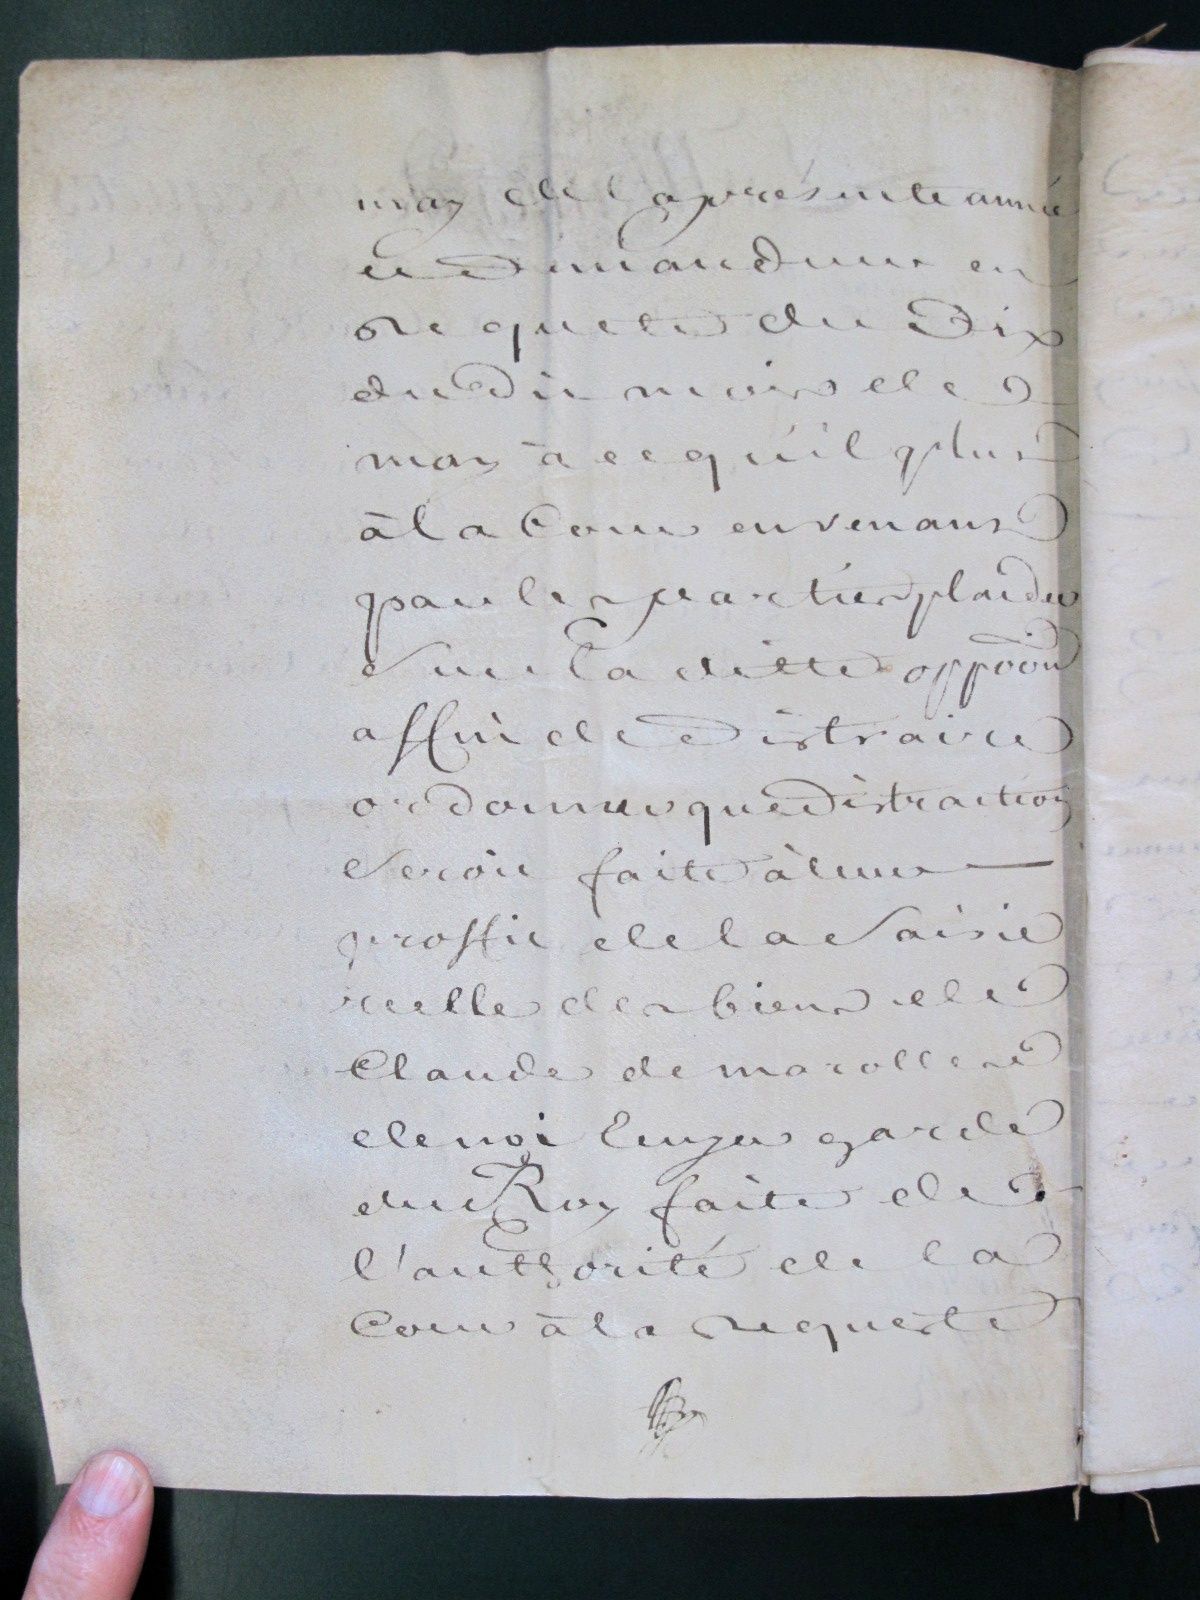 may de la présente année
et demandeur en
requete du dix
dudit mois de
may à ce qu'il plust
à la Cour en venant
par les parties plaider
sur la ditte oppõon
affin de distraire
ordonner que distraction
seroit faite à leur
proffit de la saisie
réelle des biens de
Claude de marolles
garde
du Roy faite de
l'authorité de la
Cour à la requeste